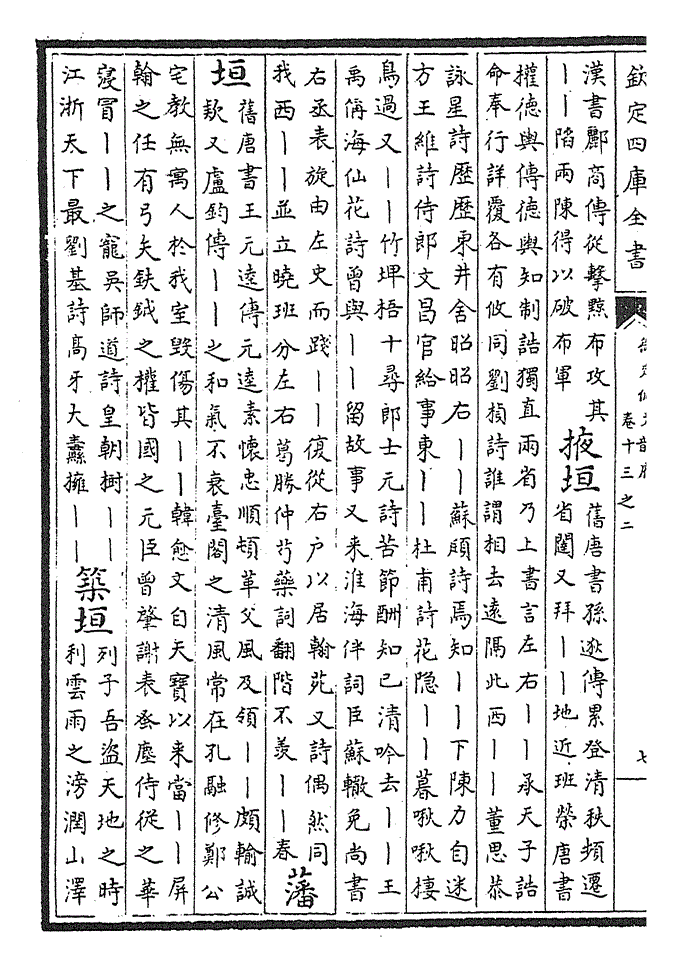 欽定四庫全書
御定佩文韻府
卷十三之二
七
漢書酈商傳從擊黥布攻其
丨丨陷兩陳得以破布軍
掖垣
舊唐書孫逖傳累登清秩頻遷
省闥又拜丨丨地近班榮唐書
權德輿傳德輿知制誥獨直兩省乃上書言左右丨丨承天子誥
命奉行詳覆各有攸同劉楨詩誰謂相去遠隔此西丨丨董思恭
詠星詩歷歷東井舍昭昭右丨丨蘇頲詩焉知丨丨下陳力自迷
方王維詩侍郎文昌宫給事東丨丨杜甫詩花隱丨丨暮啾啾棲
鳥過又丨丨竹埤梧十尋郎士元詩苦節酬知已清吟去丨丨王
禹偁海仙花詩曾與丨丨留故事又来淮海伴詞臣蘇轍免尚書
右丞表旋由左史而踐丨丨復從右户以居翰苑又詩偶然同
我西丨丨並立曉班分左右葛勝仲芍藥詞翻階不羨丨丨春
藩
垣
舊唐書王元逵傳元逵素懷忠順頓革父風及領丨丨頗輸誠
款又盧鈞傳丨丨之和氣不衰臺閣之清風常在孔融修鄭公
宅教無寓人於我室毀傷其丨丨韓愈文自天寶以来當丨丨屏
翰之任有弓矢鈇鉞之權皆國之元臣曾肇謝表蚤塵侍從之華
寖冒丨丨之寵吳師道詩皇朝樹丨丨
江浙天下最劉基詩高牙大纛擁丨丨
築垣
列子吾盜天地之時
利雲雨之滂潤山澤